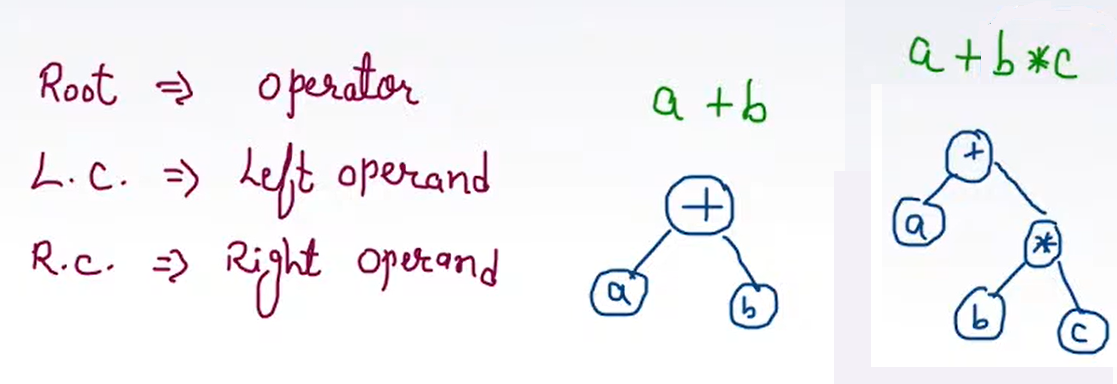 Root ⇒ operator
L.C. ⇒ Left operand
R.C. ⇒ Right operand
a + b
+
a b
a + b * c
+
a
*
b c